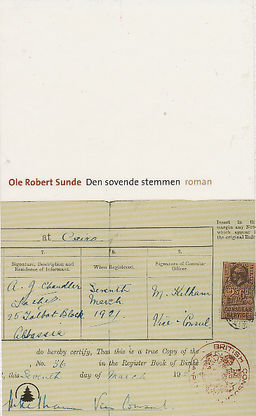 Ole Robert Sunde Den sovende stemmen roman
Insert in the
margin any Not
which appear
the original
at Cairo
7. 8. 9.
Signature, Description and
Residence of Informant.
When Registered.
Signature of Consular
Officer.
A. J. Chandler
25 Talbot Block
Abbassia
Seventh
March
M. Kilham
Vice-Consul
CONSULAR
SERVICE
do hereby certify, That this is a true Copy of the
No. 36 in the Register Book of
this Seventh day of March 19
Vice Consul
BRITISH